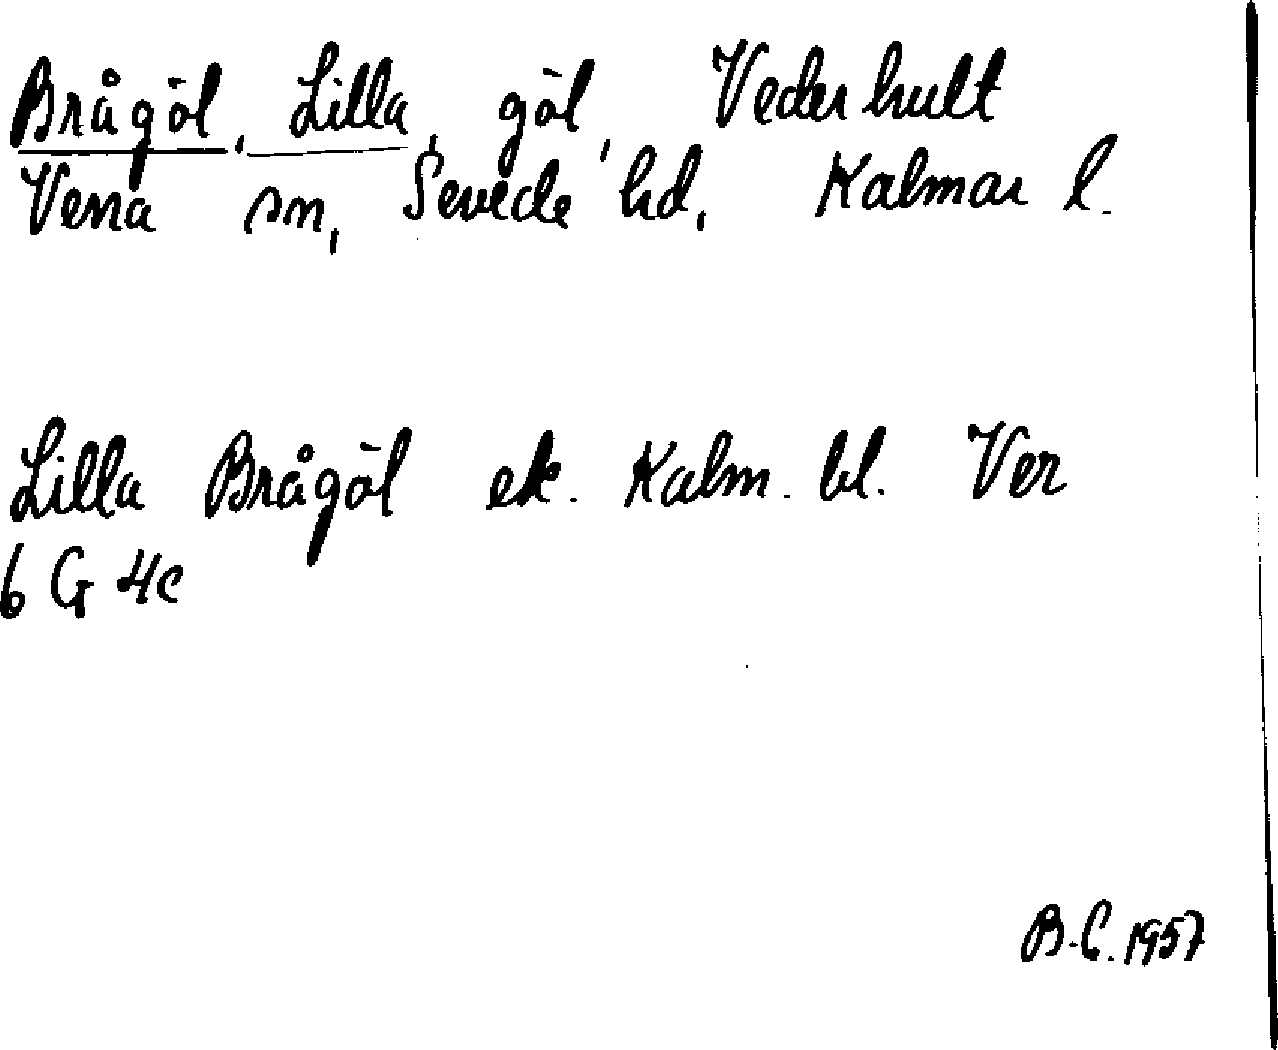 Brågöl, Lilla, göl, Vederhult
Vena sn, Sevede hd, Kalmar l.
Lilla Brågöl ek. Kalm. bl. Ver
6 G 4c
B.C. 1957